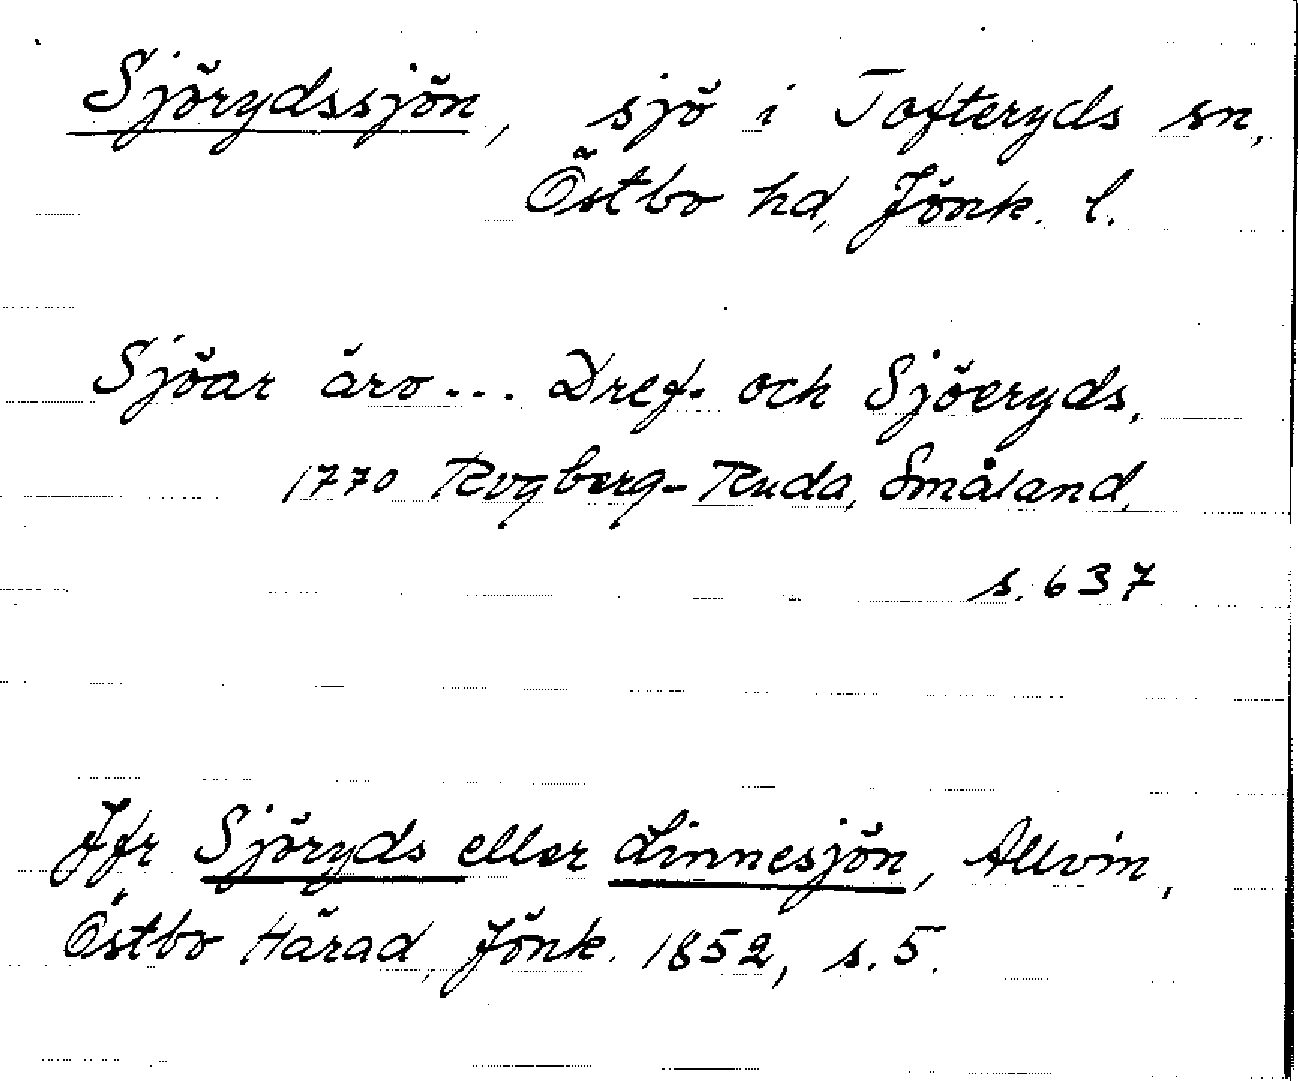 Sjörydssjön, sjö i Tofteryds sn,
Östbo hd, Jönk. l.
Sjöar äro... Dref- och Sjöeryds,
1770 Rogberg-Ruda, Småland,
s. 637
Jfr Sjöryds eller Linnesjön, Allvin,
Östbo Härad, Jönk. 1852, s. 5.